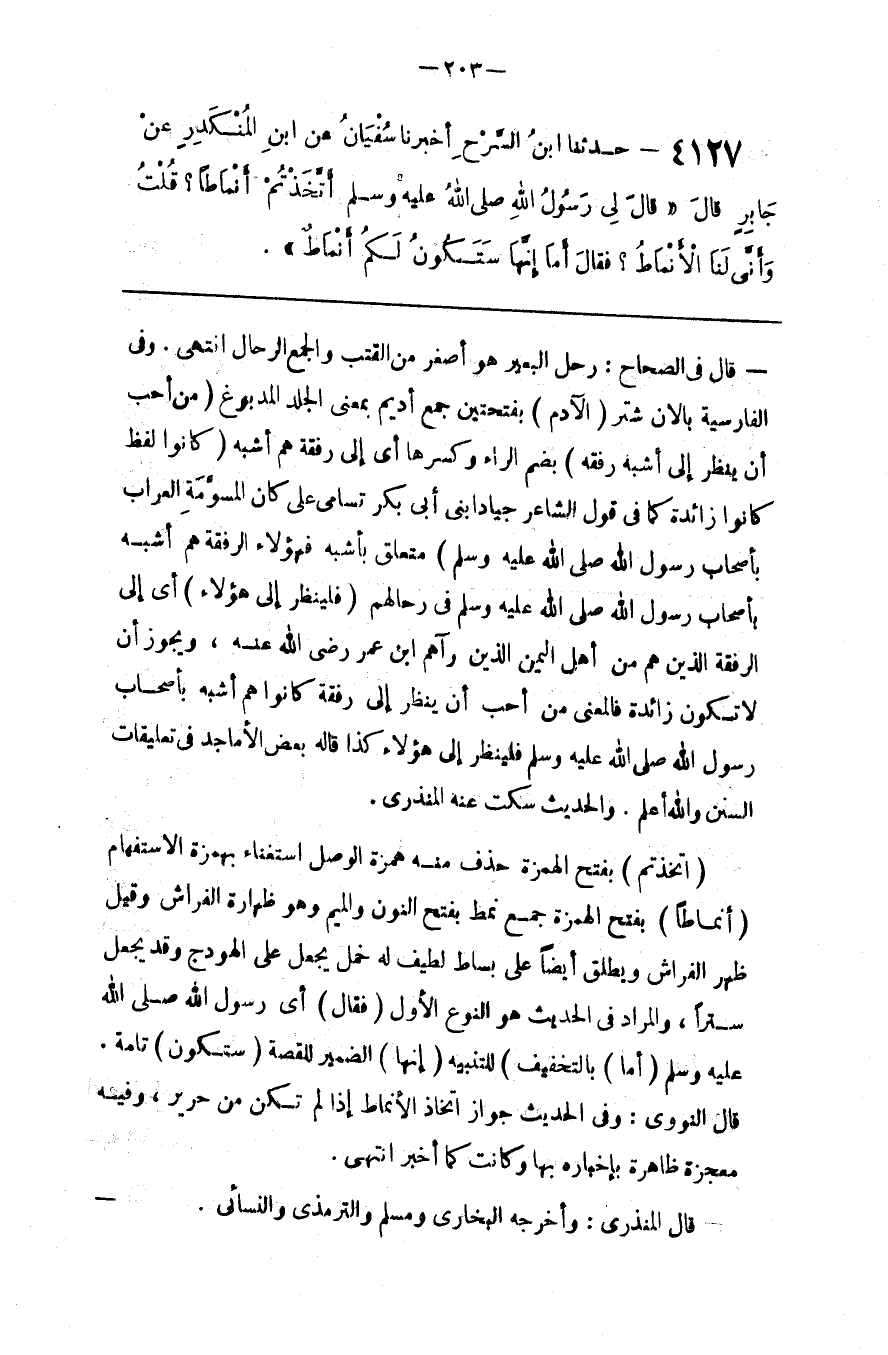 — ٢٠٣ —
٤١٢٧ — حدثنا ابنُ السَّرْحِ أخبرنا سُفْيَانُ عن ابنِ المُنْكَدِرِ عنْ
جَابِرٍ قالَ « قالَ لِي رَسُولُ اللهِ صلى اللهُ عليه وسلم أَتَّخَذْتُمْ أَنْمَاطًا ؟ قُلْتُ
وَأَنَّى لَنَا الْأَنْمَاطُ ؟ فقالَ أَمَا إِنَّهَا سَتَكُونُ لَكُمُ أَنْمَاطٌ » .
— قال فى الصحاح : رحل البعير هو أصغر من القتب والجمع الرحال انتهى . وفى
الفارسية بالان شتر ( الآدم ) بفتحتين جمع أديم بمعنى الجلد المدبوغ ( من أحب
أن ينظر إلى أشبه رفقه ) بضم الراء وكسرها أى إلى رفقة هم أشبه ( كانوا لفظ
كانوا زائدة كما فى قول الشاعر جيادابنى أبى بكر تسامى على كان المسوَّمَةِ العراب
بأصحاب رسول الله صلى الله عليه وسلم ) متعلق بأشبه فهؤلاء الرفقة هم أشبه
بأصحاب رسول الله صلى الله عليه وسلم فى رحالهم ( فلينظر إلى هؤلاء ) أى إلى
الرفقة الذين هم من أهل اليمن الذين رآهم ابن عمر رضى الله عنه ، ويجوز أن
لا تكون زائدة فالمعنى من أحب أن ينظر إلى رفقة كانوا هم أشبه بأصحاب
رسول الله صلى الله عليه وسلم فلينظر إلى هؤلاء كذا قاله بعض الأماجد فى تعليقات
السنن والله أعلم . والحديث سكت عنه المنذرى .
( اتخذتم ) بفتح الهمزة حذف منه همزة الوصل استغناء بهمزة الاستفهام
( أنماطاً ) بفتح الهمزة جمع نمط بفتح النون والميم وهو ظهارة الفراش وقيل
ظهر الفراش ويطلق أيضاً على بساط لطيف له خمل يجعل على الهودج وقد يجعل
ستراً ، والمراد فى الحديث هو النوع الأول ( فقال ) أى رسول الله صلى الله
عليه وسلم ( أما ) بالتخفيف ) للتنبيه ( إنها ) الضمير للقصة ( ستكون ) تامة .
قال النووى : وفى الحديث جواز اتخاذ الأنماط إذا لم تكن من حرير ، وفيه
معجزة ظاهرة بإخباره بها وكانت كما أخبر انتهى .
— قال المنذرى : وأخرجه البخارى ومسلم والترمذى والنسائى . —